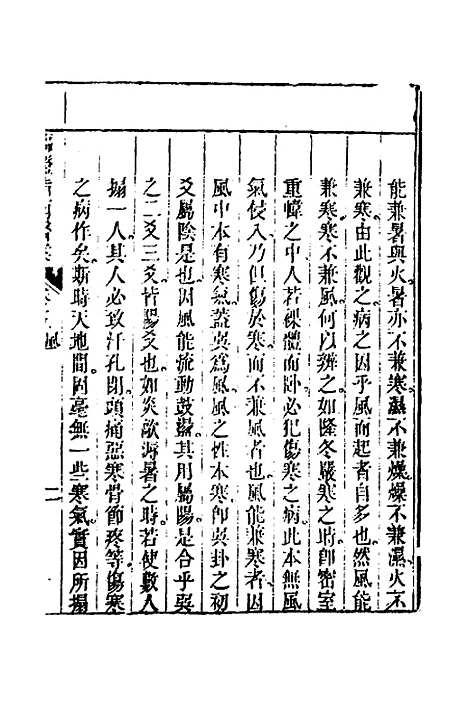 能兼暑與火暑亦不兼寒濕不兼燥燥不兼濕火不
兼寒由此觀之病之因乎風而起者自多也然風能
兼寒寒不兼風何以辨之如隆冬嚴寒之時即密室
重幃之中人若裸體而臥必犯傷寒之病此本無風
氣侵入乃但傷於寒而不兼風者也風能兼寒者因
風中本有寒氣蓋巽為風風之性本寒即巽卦之初
爻屬陰是也因風能流動鼓盪其用屬陽是合乎巽
之二爻三爻皆陽爻也如炎歊溽暑之時若使數人
搧一人其人必致汗孔閉頭痛惡寒骨節疼等傷寒
之病作矣斯時天地間固毫無一些寒氣實因所搧
臨證指南醫案 風 二